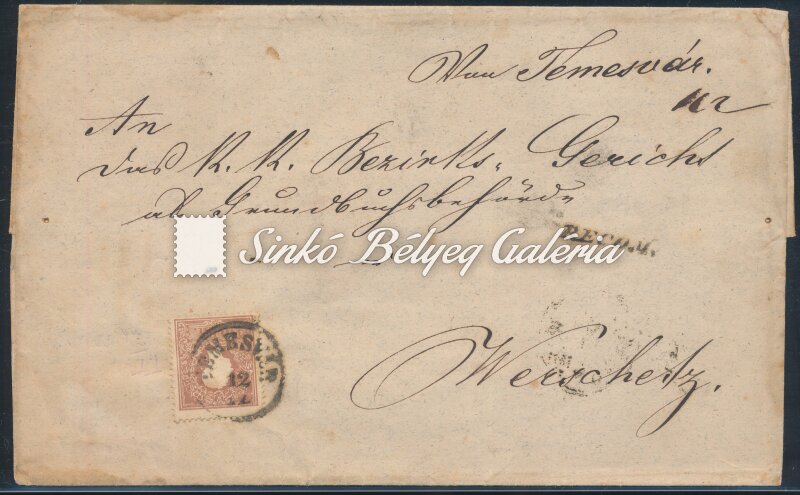 Von Temesvár.
An
das K. K. Bezirks-Gericht
als Grundbuchsbehörde
RECOM.
Sinkó Bélyeg Galéria
TEMESVAR
12
Werschetz.